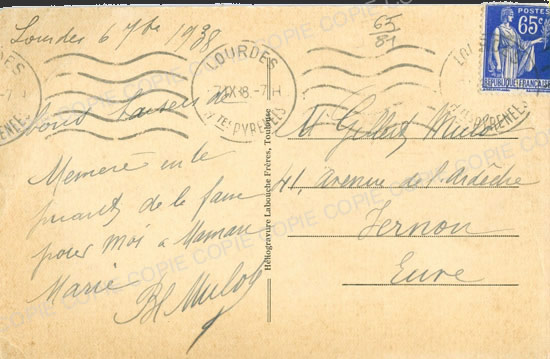 Lourdes 6 7bre 1938
65/81
LOURDES
7-IX 38 -7H
HTES PYRENEES
POSTES
65c
REPUBLIQUE FRANÇAISE
bons baisers de
Mémère en te
priant de le faire
pour moi à Maman
Marie
Bl Mulot
Héliogravure Labouche Frères, Toulouse
Mr Gilbert Mulot
41, Avenue de l'Ardèche
Vernon
Eure
COPIE COPIE COPIE